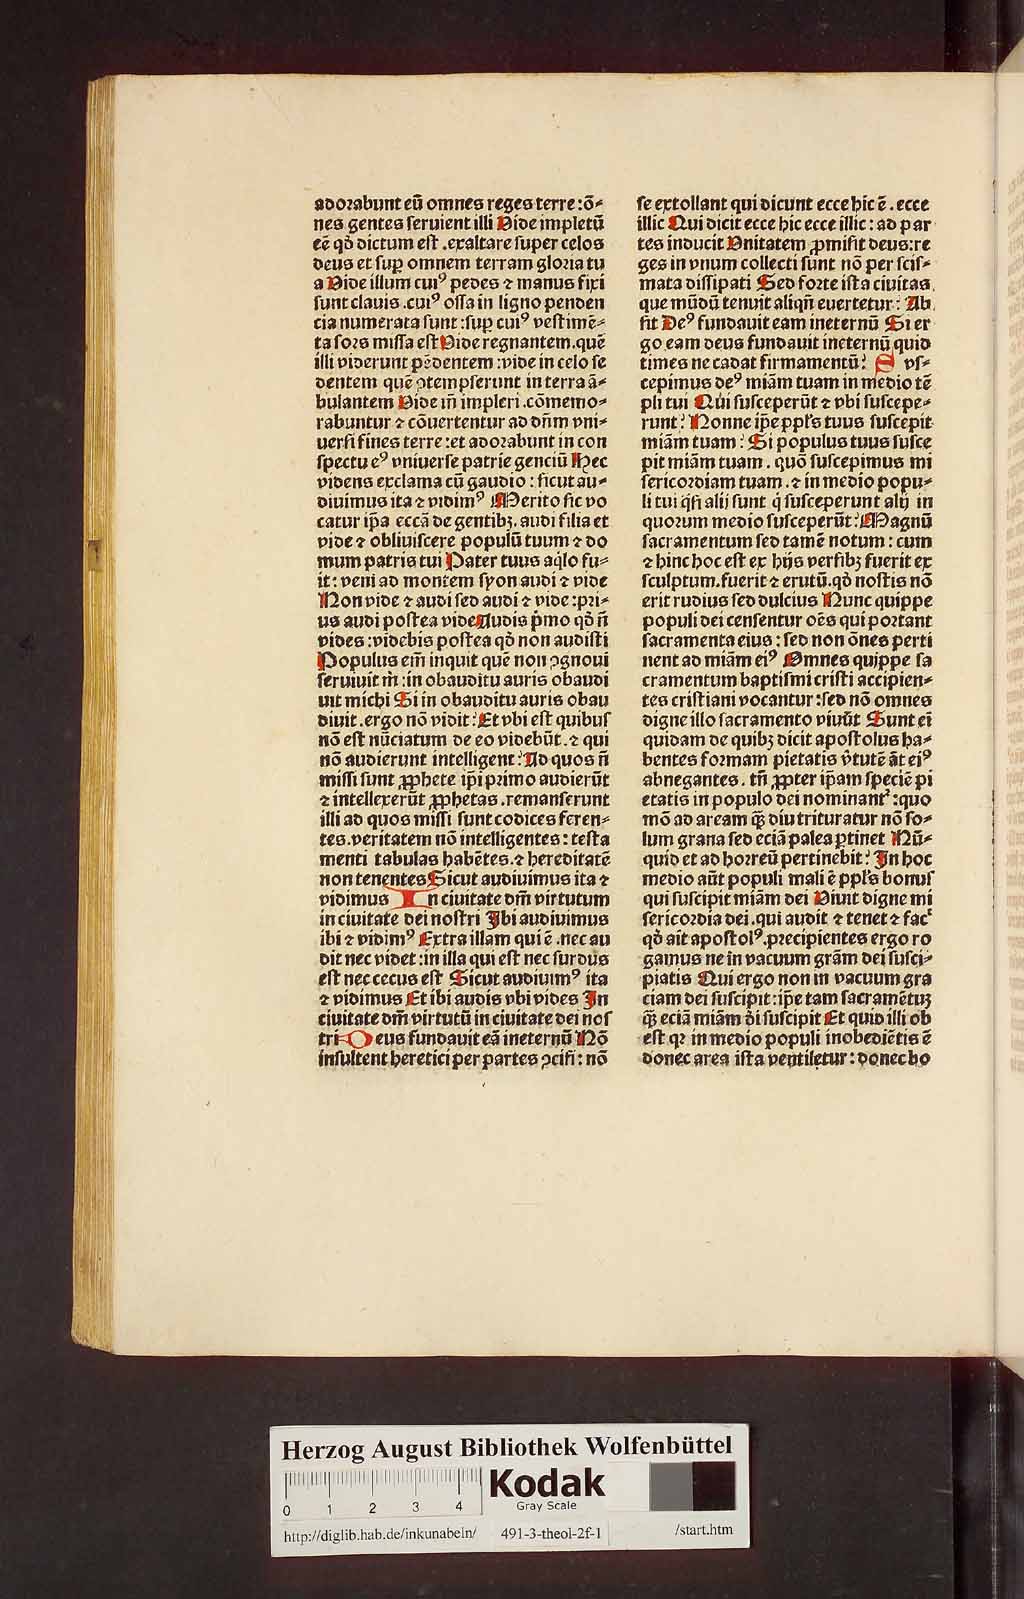 adorabunt eū omnes reges terre :ō-
nes gentes seruient illi Uide impletū
eē qď dictum est .exaltare super celos
deus et suꝑ omnem terram gloria tu
a Uide illum cuiꝰ pedes ⁊ manus fixi
sunt clauis .cuiꝰ ossa in ligno penden
cia numerata sunt :suꝑ cuiꝰ vestimē-
ta sors missa est Uide regnantem .quē
illi viderunt pēdentem :vide in celo se
dentem quē ↄtempserunt in terra ā-
bulantem Uide iñ impleri .cōmemo-
rabuntur ⁊ cōuertentur ad dñm vni-
uersi fines terre :et adorabunt in con
spectu eꝰ vniuerse patrie genciū Hec
videns exclama cū gaudio : sicut au-
diuimus ita ⁊ vidimꝰ Merito sic vo
catur ip̄a eccā de gentibꝫ. audi filia et
vide ⁊ obliuiscere populū tuum ⁊ do
mum patris tui Pater tuus aq̇lo fu-
it : veni ad montem syon audi ⁊ vide
Non vide ⁊ audi sed audi ⁊ vide :pri-
us audi postea vide Audis p̄mo qď ñ
vides :videbis postea qď non audisti
Populus em̄ inquit quē non ↄgnoui
seruiuit m̄ :in obauditu auris obaudi
uit michi Si in obauditu auris obau
diuit .ergo nō vidit : Et vbi est quibus
nō est nūciatum de eo videbūt .⁊ qui
nō audierunt intelligent : Ad quos ñ
missi sunt ꝓphete ip̄i primo audierūt
⁊ intellexerūt ꝓphetas .remanserunt
illi ad quos missi sunt codices feren-
tes .veritatem nō intelligentes : testa
menti tabulas habētes .⁊ hereditatē
non tenentes Sicut audiuimus ita ⁊
vidimus In ciuitate dm̄ virtutum
in ciuitate dei nostri Ibi audiuimus
ibi ⁊ vidimꝰ Extra illam qui ē .nec au
dit nec videt :in illa qui est nec surdus
est nec cecus est Sicut audiuimꝰ ita
⁊ vidimus Et ibi audis vbi vides In
ciuitate dm̄ virtutū in ciuitate dei nos
tri Deus fundauit eā ineternū Nō
insultent heretici per partes ↄcisi : nō
se extollant qui dicunt ecce hic ē . ecce
illic Qui dicit ecce hic ecce illic : ad par
tes inducit Unitatem ꝓmisit deus:re
ges in vnum collecti sunt nō per scis-
mata dissipati Sed forte ista ciuitas
que mūdū tenuit aliqñ euertetur : Ab
sit Deꝰ fundauit eam ineternū Si er
go eam deus fundauit ineternū quid
times ne cadat firmamentū : Sus-
cepimus deꝰ miām tuam in medio tē
pli tui Qui susceperūt ⁊ vbi suscepe-
runt : Nonne ip̄e ppl's tuus suscepit
miām tuam : Si populus tuus susce
pit miām tuam . quō suscepimus mi
sericordiam tuam . ⁊ in medio popu-
li tui q̇si alij sunt q̇ susceperunt alij in
quorum medio susceperūt : Magnū
sacramentum sed tamē notum : cum
⁊ hinc hoc est ex hijs versibꝫ fuerit ex
sculptum .fuerit ⁊ erutū .qď nostis nō
erit rudius sed dulcius Nunc quippe
populi dei censentur oēs qui portant
sacramenta eius : sed non ōnes perti
nent ad miām eiꝰ Omnes quippe sa
cramentum baptismi cristi accipien-
tes cristiani vocantur :sed nō omnes
digne illo sacramento viuūt Sunt ei
quidam de quibꝫ dicit apostolus ha-
bentes formam pietatis v̇tutē āt eiꝰ
abnegantes . tñ ꝓpter ip̄am speciē pi
etatis in populo dei nominant' :quo
mō ad aream qꝫ diu trituratur nō so-
lum grana sed eciā palea ꝑtinet Nū-
quid et ad horreū pertinebit : In hoc
medio aūt populi mali ē ppl's bonus
qui suscipit miām dei Uiuit digne mi
sericordia dei .qui audit ⁊ tenet ⁊ fac'
qď ait apostolꝰ .precipientes ergo ro
gamus ne in vacuum grām dei susci-
piatis Qui ergo non in vacuum gra
ciam dei suscipit : ip̄e tam sacramētuꝫ
qꝫ eciā miām di suscipit Et quid illi ob
est qꝛ in medio populi inobediētis ē
donec area ista ventiletur : donec bo
Herzog August Bibliothek Wolfenbüttel
0 1 2 3 4
Kodak
Gray Scale
http://diglib.hab.de/inkunabeln/ 491-3-theol-2f-1 /start.htm